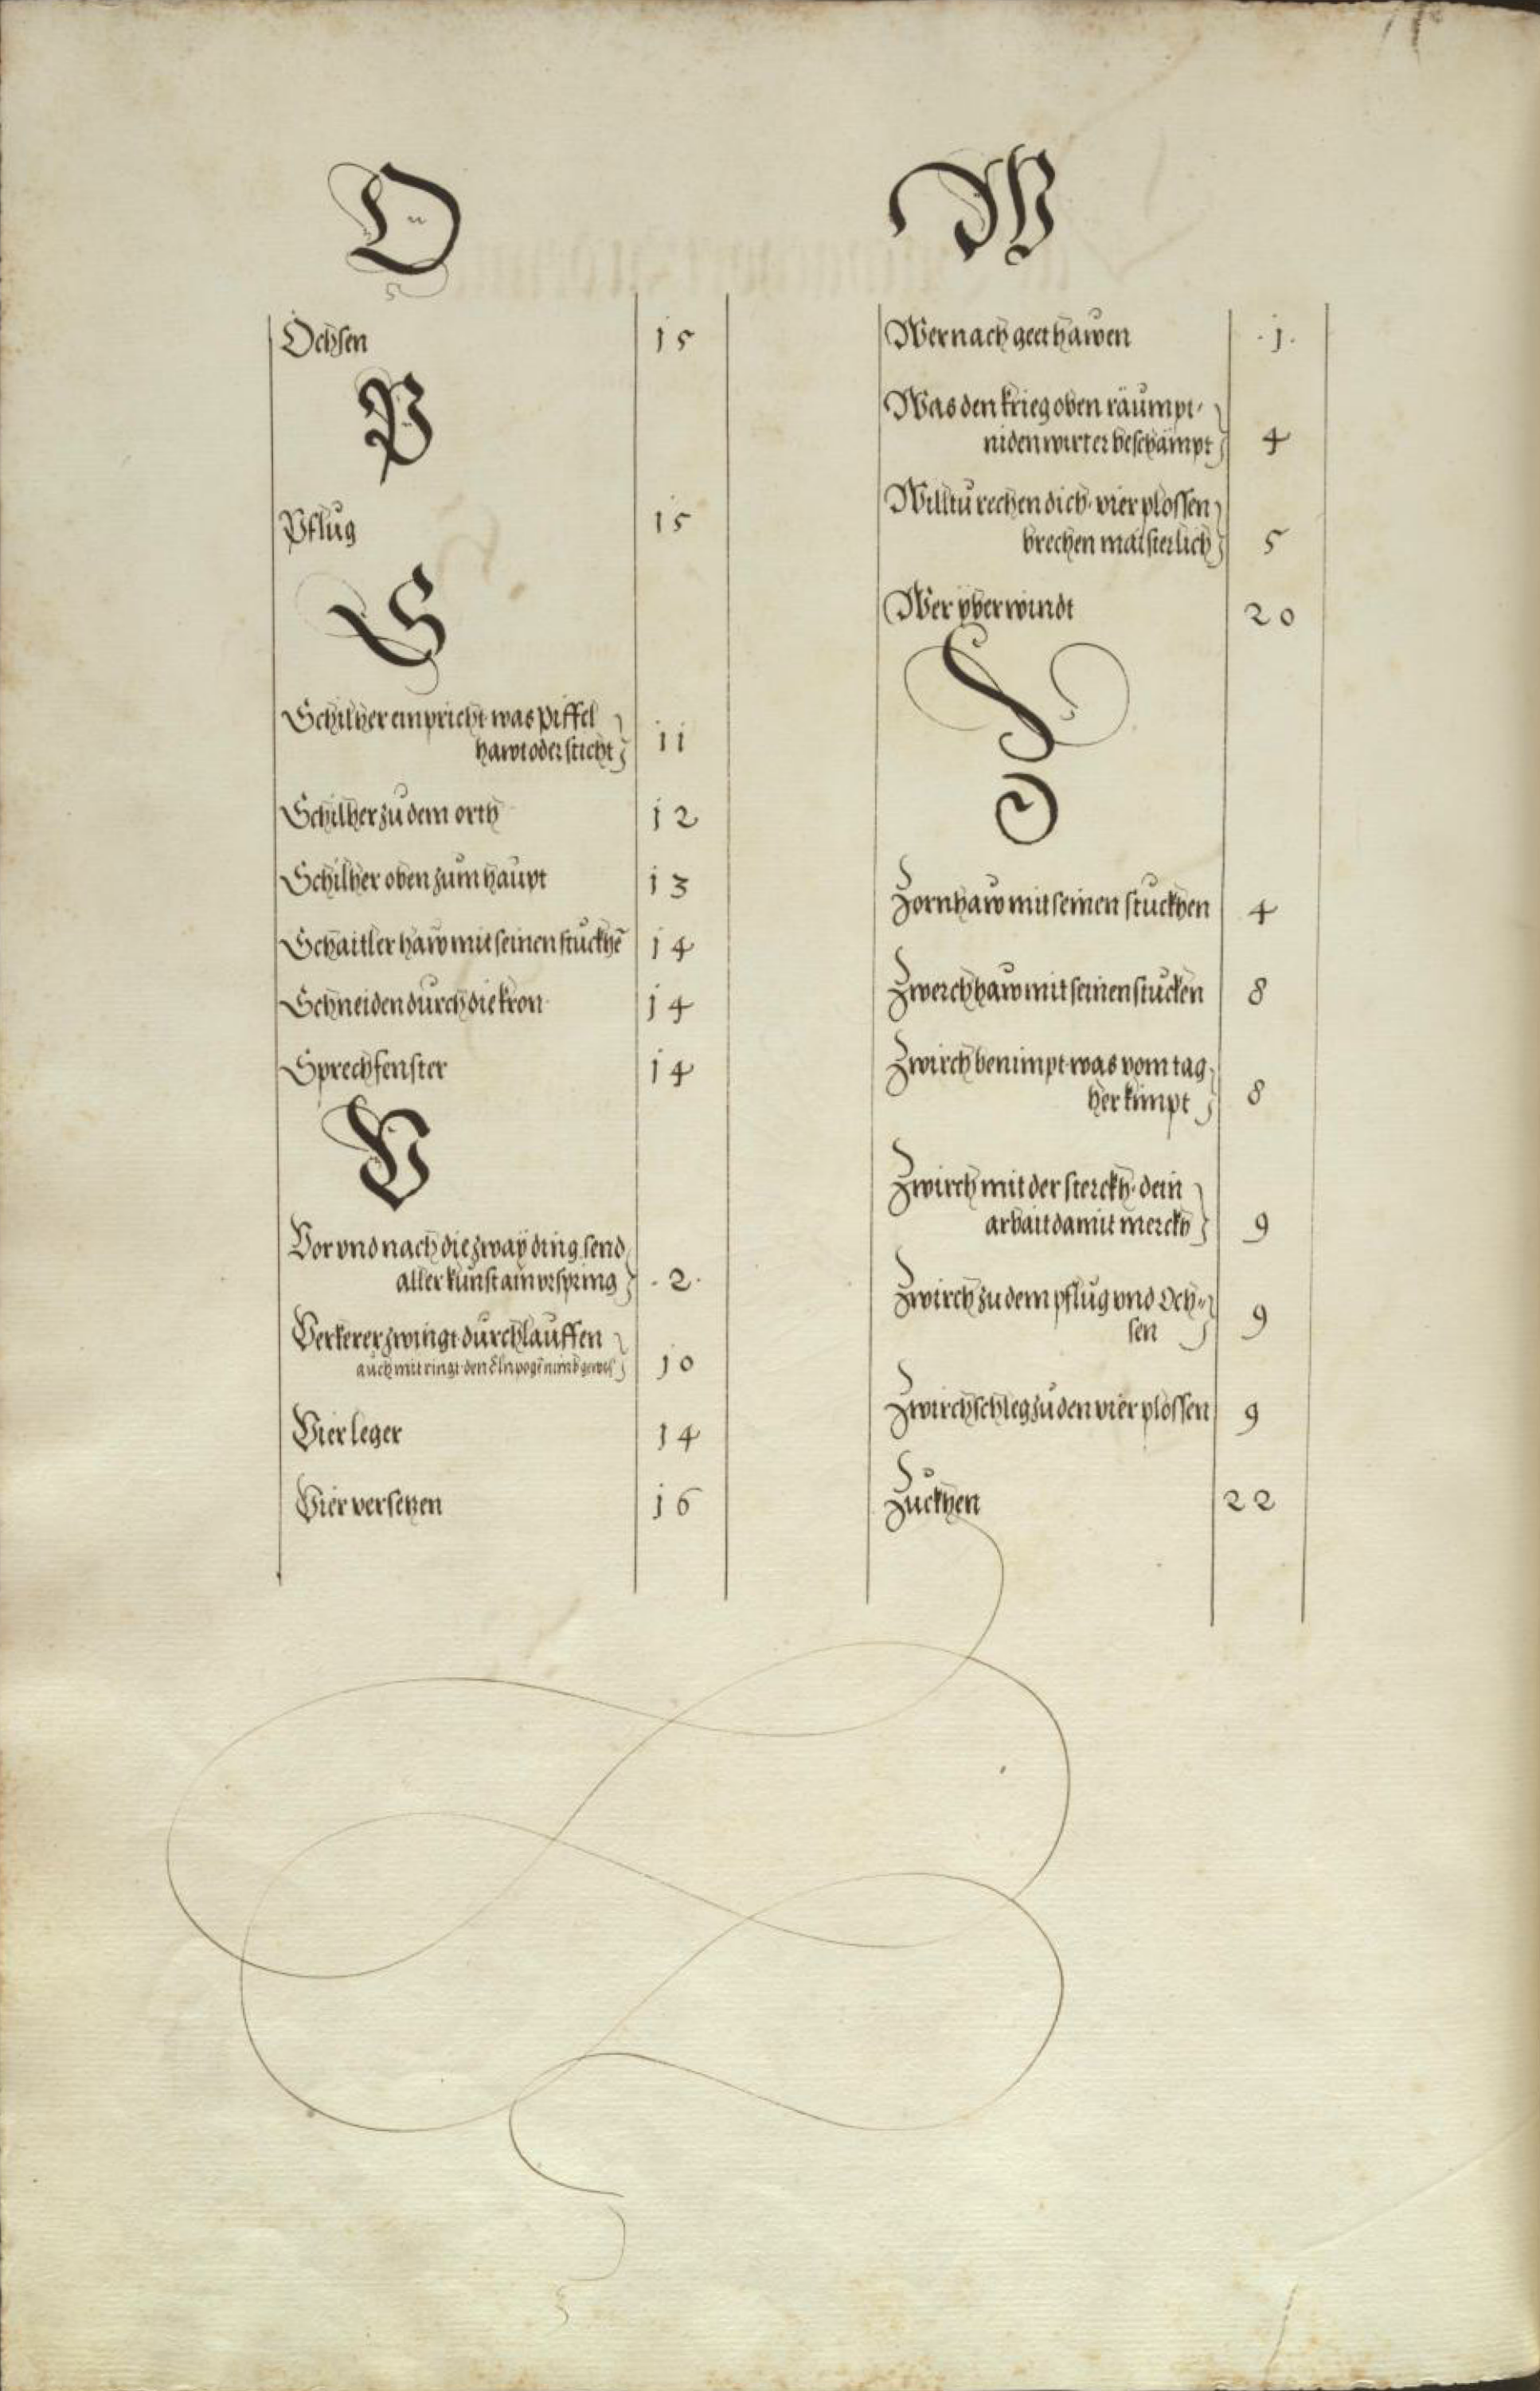 O
Ochsen 15
P
Pflug 15
S
Schilher einpricht was piffel
hawt oder sticht 11
Schilher zu dem orth 12
Schilher oben zum haupt 13
Schaitler haw mit seinen stuckhē 14
Schneiden durch die kron 14
Sprechfenster 14
V
Vor vnd nach die zway ding send
aller kunst ain vrspring .2.
Verkerer zwingt durchlauffen
auch mit ringt den Elnpogē nimb gewiß 10
Vier leger 14
Vier versetzen 16
W
Wer nach geet hawen .1.
Was den krieg oben räumpt
niden wirt er beschämpt 4
Willtu rechen dich vier plossen
brechen maisterlich 5
Wer vberwindt 20
Z
Zornhaw mit seinen stuckhen 4
Zwerchhaw mit seinen stucken 8
Zwirch benimpt was vom tag
her kimpt 8
Zwirch mit der sterckh dein
arbait damit merckh 9
Zwirch zu dem pflug vnd Och=
sen 9
Zwirch schleg zu den vier plossen 9
Zuckhen 22